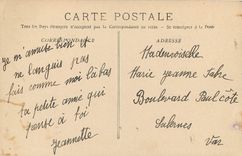 CARTE POSTALE
Tous les Pays étrangers n'acceptent pas la Correspondance au recto. - Se renseigner à la Poste
CORRESPONDANCE
je m'amuse bien et
ne languis pas
fais comme moi là bas
ta petite amie qui
pense à toi
Jeannette
Mademoiselle
Marie Jeanne Fabre
Boulevard Paul côte
Salernes
Var